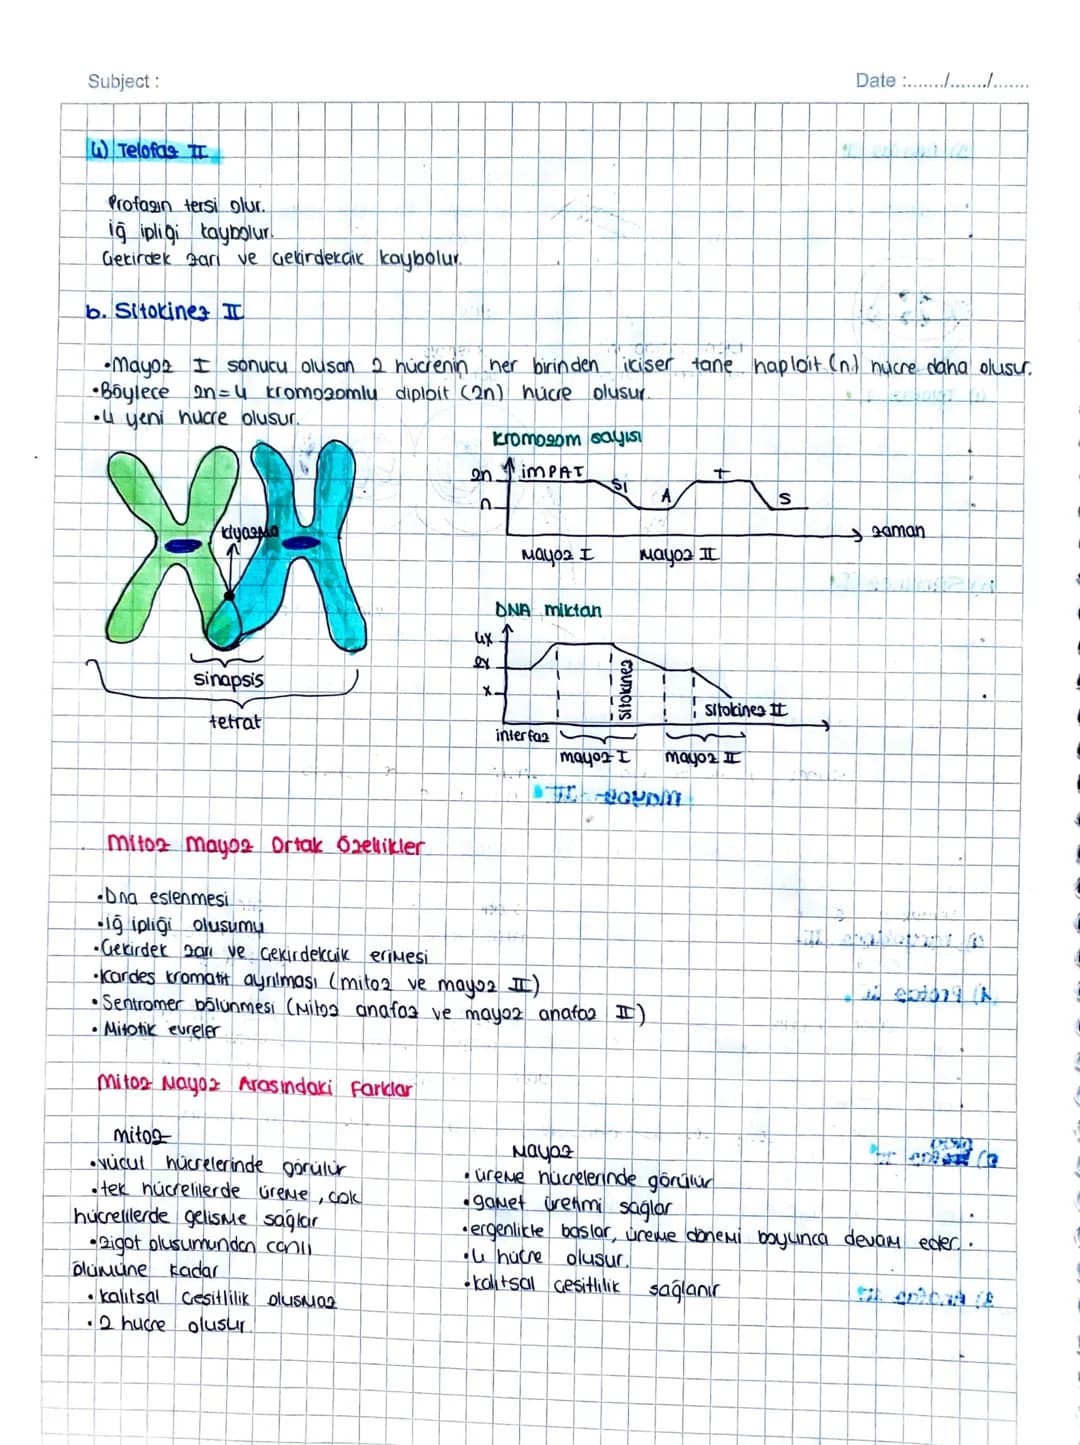 Subject :
Date :......./......./.......
4) Telofaz II
Profazın tersi olur.
iğ ipliği kaybolur.
Çekirdek zarı ve çekirdekcik kaybolur.
b. Sitokinez II
•Mayoz I sonucu olusan 2 hücrenin her birinden ikiser tane haploit (n) hücre daha olusur.
•Böylece 2n=4 kromozomlu diploit (2n) hücre olusur.
•4 yeni hücre olusur.
kiyazma
sinapsis
tetrat
kromozom sayısı
2n İMPAT
n
S1
A
T
S
zaman
Mayoz I
Mayoz II
DNA miktarı
4x
2x
x
sitokinez
sitokinez II
interfaz
mayoz I
mayoz II
Mitoz Mayoz Ortak Özellikler
•Dna eslenmesi
•iğ ipliği olusumu
•Çekirdek zarı ve çekirdekcik eriMesi
•Kardes kromatit ayrılması (mitoz ve mayoz II)
•Sentromer bölünmesi (Mitoz anafaz ve mayoz anafaz II)
•Mitotik evreler
Mitoz Mayoz Arasındaki Farklar
mitoz
•vücut hücrelerinde görülür
•tek hücrelilerde üreMe, çok
hücrelilerde gelisMe sağlar
•zigot olusumundan canlı
ölümüne kadar
•kalıtsal çesitlilik olusMaz
•2 hücre olusur.
Mayoz
•üreMe hücrelerinde görülür
•gaMet üretimi sağlar
•ergenlikle baslar, üreMe döneMi boyunca devaM eder.
•4 hücre olusur.
•kalıtsal çesitlilik sağlanır